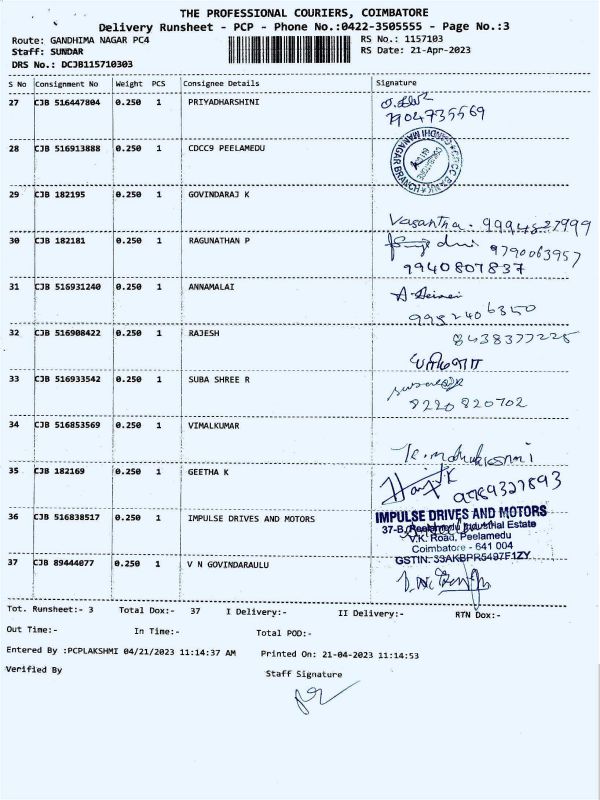 THE PROFESSIONAL COURIERS, COIMBATORE
Delivery Runsheet - PCP - Phone No.:0422-3505555 - Page No.:3
Route: GANDHIMA NAGAR PC4 RS No.: 1157103
Staff: SUNDAR RS Date: 21-Apr-2023
DRS No.: DCJB115710303
S No Consignment No Weight PCS Consignee Details Signature
27 CJB 516447804 0.250 1 PRIYADHARSHINI
7904735569
28 CJB 516913888 0.250 1 CDCC9 PEELAMEDU
29 CJB 182195 0.250 1 GOVINDARAJ K
Vasantha.
30 CJB 182181 0.250 1 RAGUNATHAN P
9790063957
9940807837
31 CJB 516931240 0.250 1 ANNAMALAI
9952406350
32 CJB 516908422 0.250 1 RAJESH
8438377225
33 CJB 516933542 0.250 1 SUBA SHREE R
8220820702
34 CJB 516853569 0.250 1 VIMALKUMAR
35 CJB 182169 0.250 1 GEETHA K
36 CJB 516838517 0.250 1 IMPULSE DRIVES AND MOTORS
IMPULSE DRIVES AND MOTORS
37-B, Peelamedu Industrial Estate
V.K. Road, Peelamedu
Coimbatore - 641 004
GSTIN: 33AKBPR5497F1ZY
37 CJB 89444077 0.250 1 V N GOVINDARAULU
Tot. Runsheet:- 3 Total Dox:- 37 I Delivery:- II Delivery:- RTN Dox:-
Out Time:- In Time:- Total POD:-
Entered By :PCPLAKSHMI 04/21/2023 11:14:37 AM Printed On: 21-04-2023 11:14:53
Verified By Staff Signature